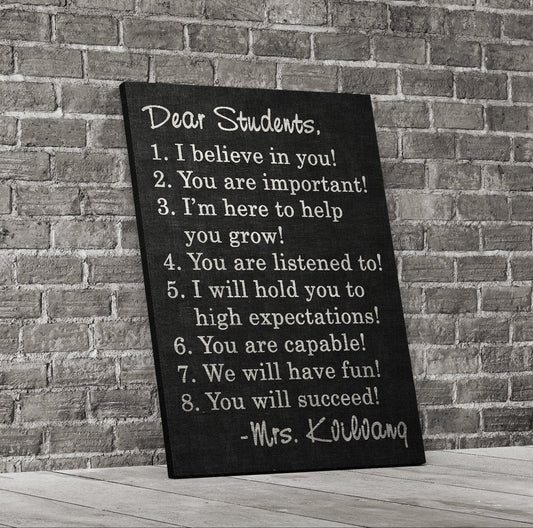 Dear Students,
1. I believe in you!
2. You are important!
3. I'm here to help
you grow!
4. You are listened to!
5. I will hold you to
high expectations!
6. You are capable!
7. We will have fun!
8. You will succeed!
-Mrs.